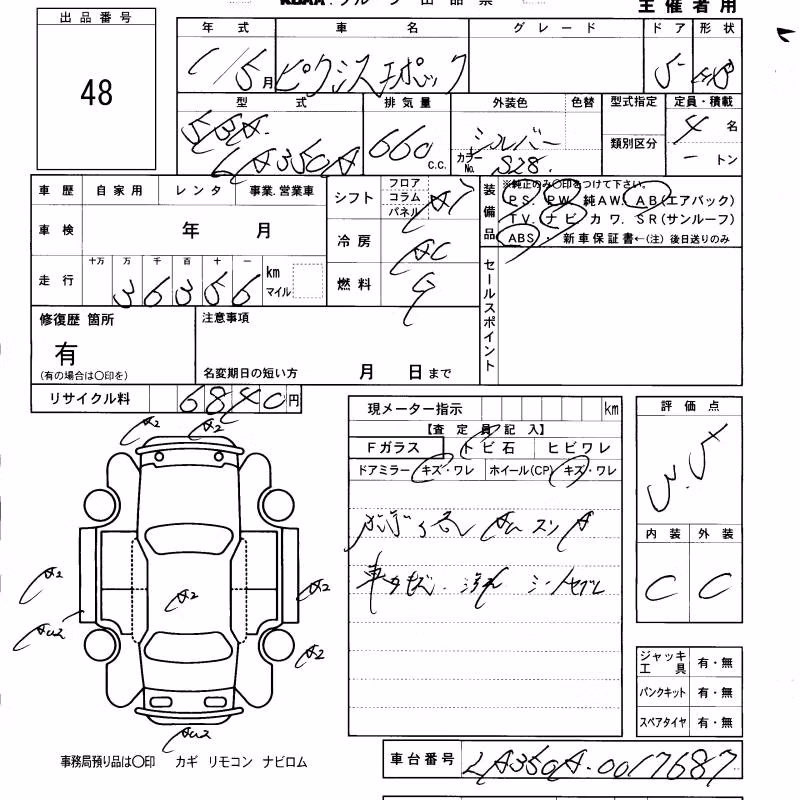 KBAA グループ 出 品 票
主催者用
出品番号
48
年式 車名 グレード ドア 形状
月 ピクシスエポック 5
型式 排気量 外装色 色替 型式指定 定員・積載
5BA
LA350A
660 C.C.
シルバー
カラーNo. S28
類別区分
4 名
ー トン
車歴 自家用 レンタ 事業.営業車
車検 年 月
走行 十万 万 千 百 十 一
36356 km マイル
シフト フロア コラム パネル AT
冷房 AC
燃料 G
装備品
※純正のみ○印をつけて下さい。
PS. PW. 純AW. AB(エアバック)
TV. ナビ カワ. SR(サンルーフ)
ABS・ 新車保証書←(注) 後日送りのみ
セールスポイント
修復歴 箇所
有
(有の場合は○印を)
注意事項
名変期日の短い方 月 日まで
リサイクル料 6840円
現メーター指示 km
【査定員記入】
Fガラス トビ石 ヒビワレ
ドアミラー キズ・ワレ ホイール(CP) キズ・ワレ
評価点
3.5
内装 外装
C C
A2
A2
A2
A2
A2
A2
車台番号 LA350A-0017687
ジャッキ 工具 有・無
パンクキット 有・無
スペアタイヤ 有・無
事務局預り品は○印 カギ リモコン ナビロム